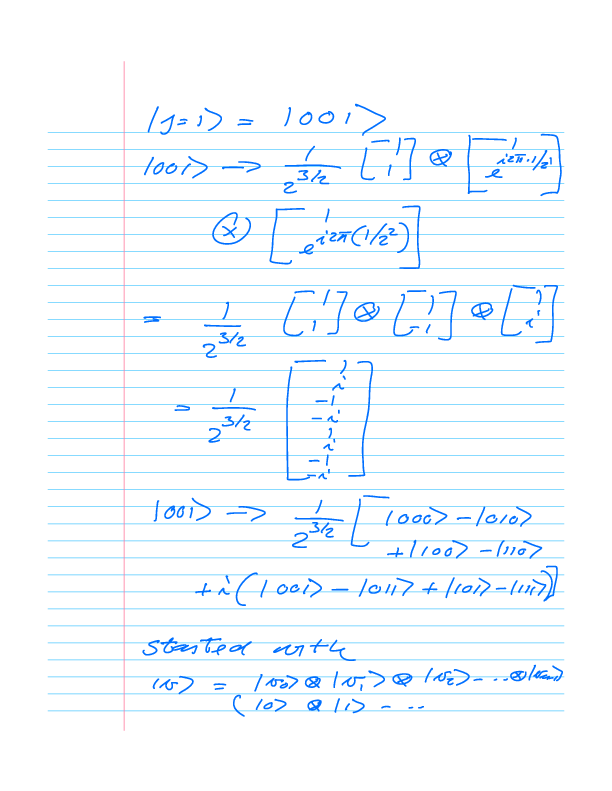 |j=1> = |001>
|001> → 1/2^{3/2} [1 1] ⊗ [1 e^{i2π·1/2^1}]
⊗ [1 e^{i2π(1/2^2)}]
= 1/2^{3/2} [1 1] ⊗ [1 -1] ⊗ [1 i]
= 1/2^{3/2} [1 i -1 -i 1 i -1 -i]
|001> → 1/2^{3/2} [|000> - |010>
+ |100> - |110>
+ i(|001> - |011> + |101> - |111>)]
started with
|v> = |v_0> ⊗ |v_1> ⊗ |v_2> - .. ⊗
(|0> ⊗ |1> - ..